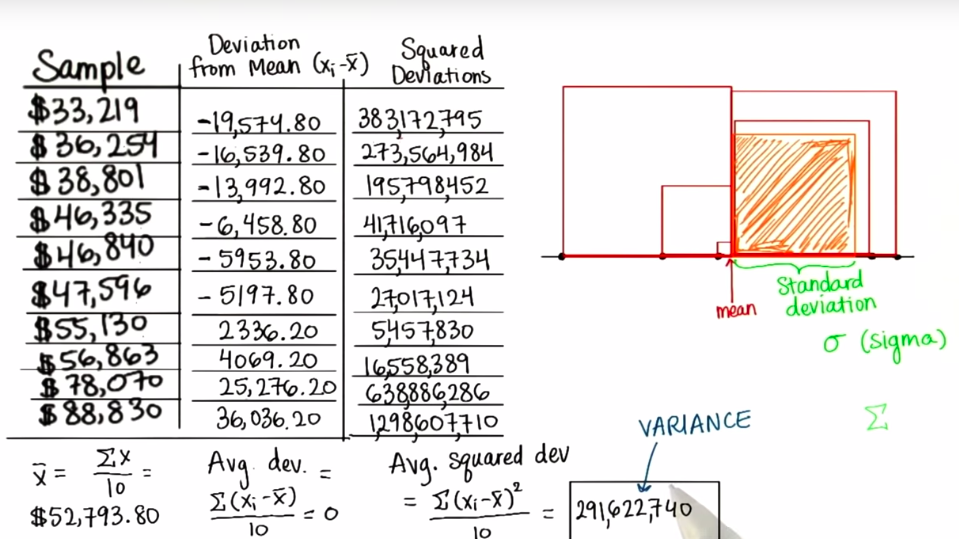 Sample
Deviation from Mean (xᵢ-x̄)
Squared Deviations
$33,219 -19,574.80 383,172,795
$36,254 -16,539.80 273,564,984
$38,801 -13,992.80 195,798,452
$46,335 -6,458.80 41,716,097
$46,840 -5953.80 35,447,734
$47,596 -5197.80 27,017,124
$55,130 2336.20 5,457,830
$56,863 4069.20 16,558,389
$78,070 25,276.20 638,886,286
$88,830 36,036.20 1,298,607,710
x̄ = Σx/10 =
$52,793.80
Avg. dev. =
Σ(xᵢ-x̄)/10 = 0
Avg. squared dev
= Σ(xᵢ-x̄)²/10 = 291,622,740
VARIANCE
mean
Standard
deviation
σ (sigma)
Σ